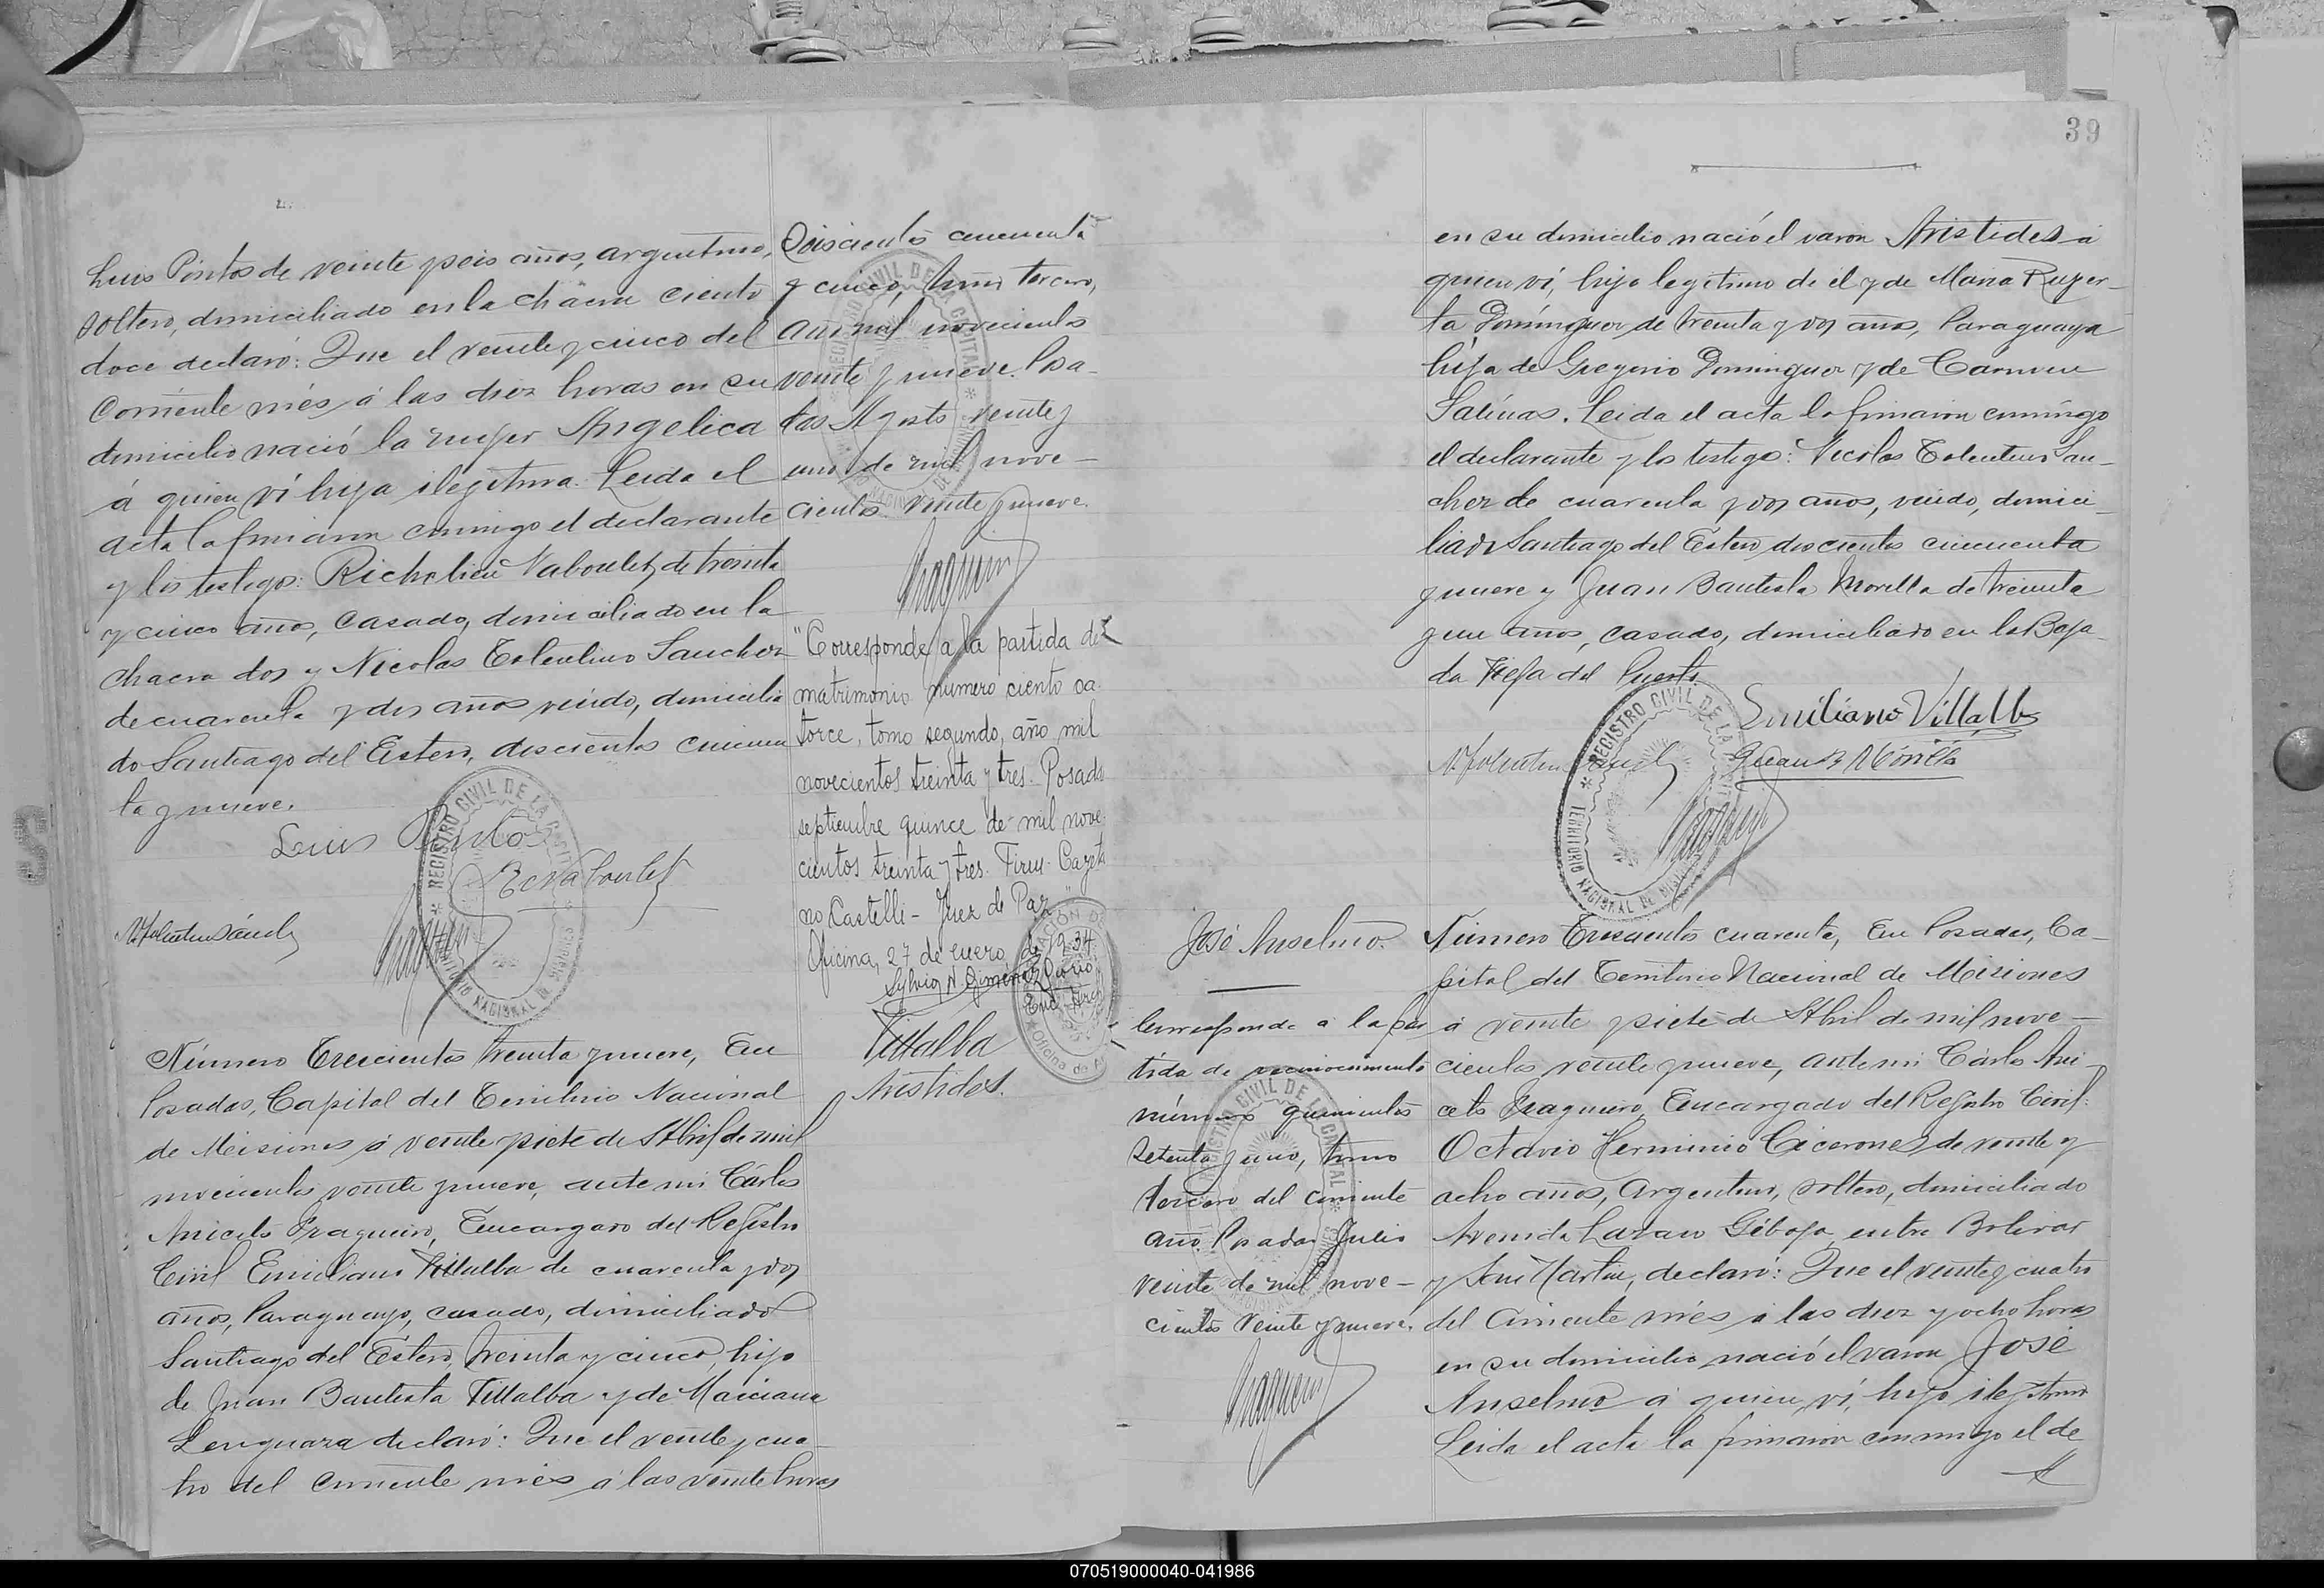 Luis Pintos de veinte y seis años, argentino,
soltero, domiciliado en la chacra ciento
doce declaró: Que el veinte y cinco del
corriente més á las diez horas en su
domicilio nació la mujer Angelica
á quien ví hija ilegítima. Leida el
acta la firmaron conmigo el declarante
y los testigos: Richelieu Naboulet, de treinta
y cinco años, casado, domiciliado en la
chacra dos y Nicolas Tolentino Sanchez
de cuarenta y dos años viudo, domicilia
do Santiago del Estero, doscientos cincuen
ta y nueve.
Luis Pintos
N. Tolentino Sánch
Número Trescientos treinta y nueve, En
Posadas, Capital del Territorio Nacional
de Misiones á veinte y siete de Abril de mil
novecientos veinte y nueve, ante mi Cárlos
Aniceto Fragueiro, Encargado del Registro
Civil Emiliano Villalba de cuarenta y dos
años, Paraguayo, casado, domiciliado
Santiago del Estero, treinta y cinco, hijo
de Juan Bautista Villalba y de Marciana
Lenguaza declaró: Que el veinte y cua
tro del corriente més á las veinte horas
Seiscientos cincuenta
y cinco, tomo tercero,
año mil novecientos
veinte y nueve. Posa-
das Agosto veinte y
uno de mil nove-
cientos veinte y nueve.
"Corresponde a la partida de
matrimonio numero ciento ca-
torce, tomo segundo, año mil
novecientos treinta y tres. Posadas
septiembre quince de mil nove-
cientos treinta y tres. Firm. Cayeta
no Castelli - Juez de Paz"
Oficina, 27 de enero de 1934
Sylvia N. Giménez
Villalba
Aristides.
39
en su domicilio nació el varon Aristides á
quien ví, hijo legítimo de él y de Maria Ruper-
ta Domínguez de treinta y dos años, Paraguaya
hija de Gregorio Dominguez y de Cármen
Salinas. Leida el acta la firmaron conmigo
el declarante y los testigos: Nicolas Tolentino San-
chez de cuarenta y dos años, viudo, domici-
liado Santiago del Estero doscientos cincuenta
y nueve y Juan Bautista Morilla de treinta
y un años, casado, domiciliado en la Baja-
da Vieja del Puerto.
Emiliano Villalba
N. Tolentino Sanch
Juan B. Morilla
REGISTRO CIVIL DE LA CAPITAL
TERRITORIO NACIONAL DE MISIONES
José Anselmo.
Corresponde a la par
tida de reconocimiento
número quinientos
setenta y uno, tomo
tercero del corriente
año. Posadas Julio
veinte de mil nove-
cientos veinte y nueve.
Número Trescientos cuarenta, En Posadas, Ca-
pital del Territorio Nacional de Misiones
á veinte y siete de Abril de mil nove-
cientos veinte y nueve, ante mi Cárlos Ani-
ceto Fragueiro, Encargado del Registro Civil:
Octavio Herminio Cicerones, de veinte y
ocho años, Argentino, soltero, domiciliado
Avenida Lazaro Gibaja entre Bolivar
y San Martin, declaró: Que el veinte y cuatro
del corriente més á las diez y ocho horas
en su domicilio nació el varon José
Anselmo á quien ví, hijo ilegítimo
Leida el acta la firmaron conmigo el de
070519000040-041986